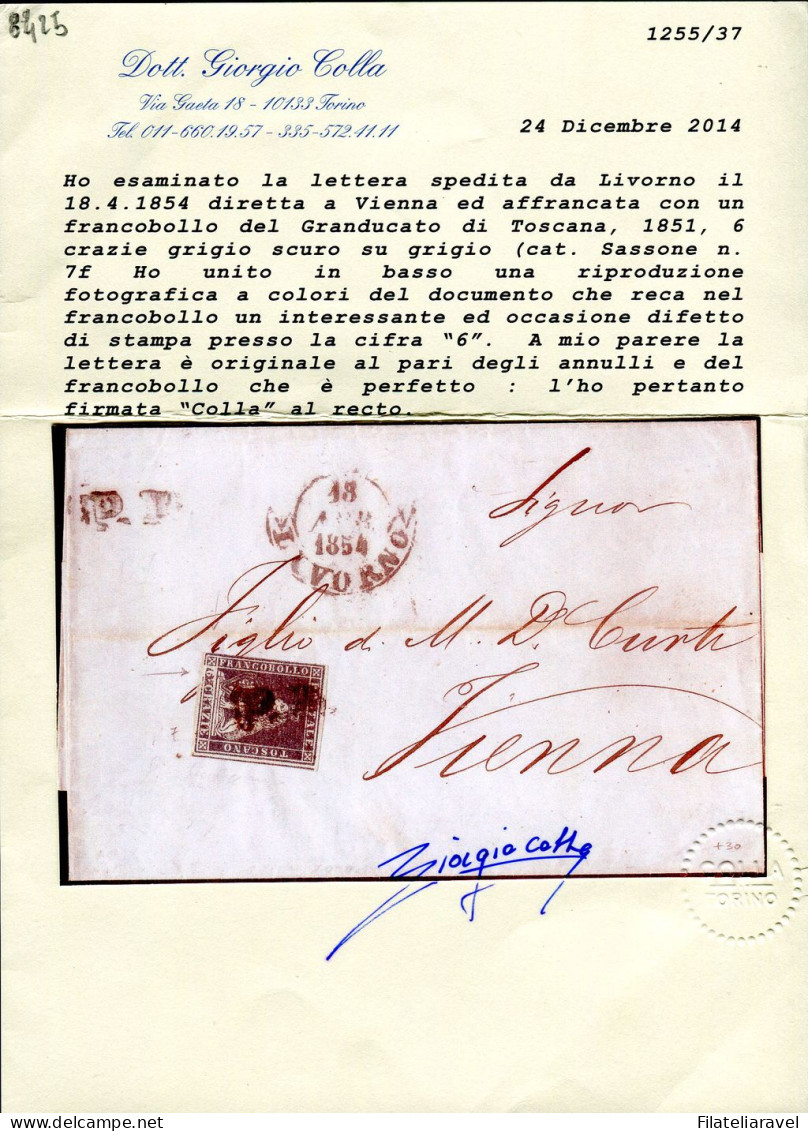 8425
1255/37
Dott. Giorgio Colla
Via Gaeta 18 - 10133 Torino
Tel. 011-660.19.57 - 335-572.11.11
24 Dicembre 2014
Ho esaminato la lettera spedita da Livorno il
18.4.1854 diretta a Vienna ed affrancata con un
francobollo del Granducato di Toscana, 1851, 6
crazie grigio scuro su grigio (cat. Sassone n.
7f Ho unito in basso una riproduzione
fotografica a colori del documento che reca nel
francobollo un interessante ed occasione difetto
di stampa presso la cifra “6”. A mio parere la
lettera è originale al pari degli annulli e del
francobollo che è perfetto : l’ho pertanto
firmata “Colla” al recto.
P. P
18
APR.
1854
LIVORNO
Signor
Figlio d. M. D. Curti
Vienna
FRANCOBOLLO
TOSCANO
CRAZIE
Giorgio Colla
+30
COLLA
TORINO
Filateliaravel